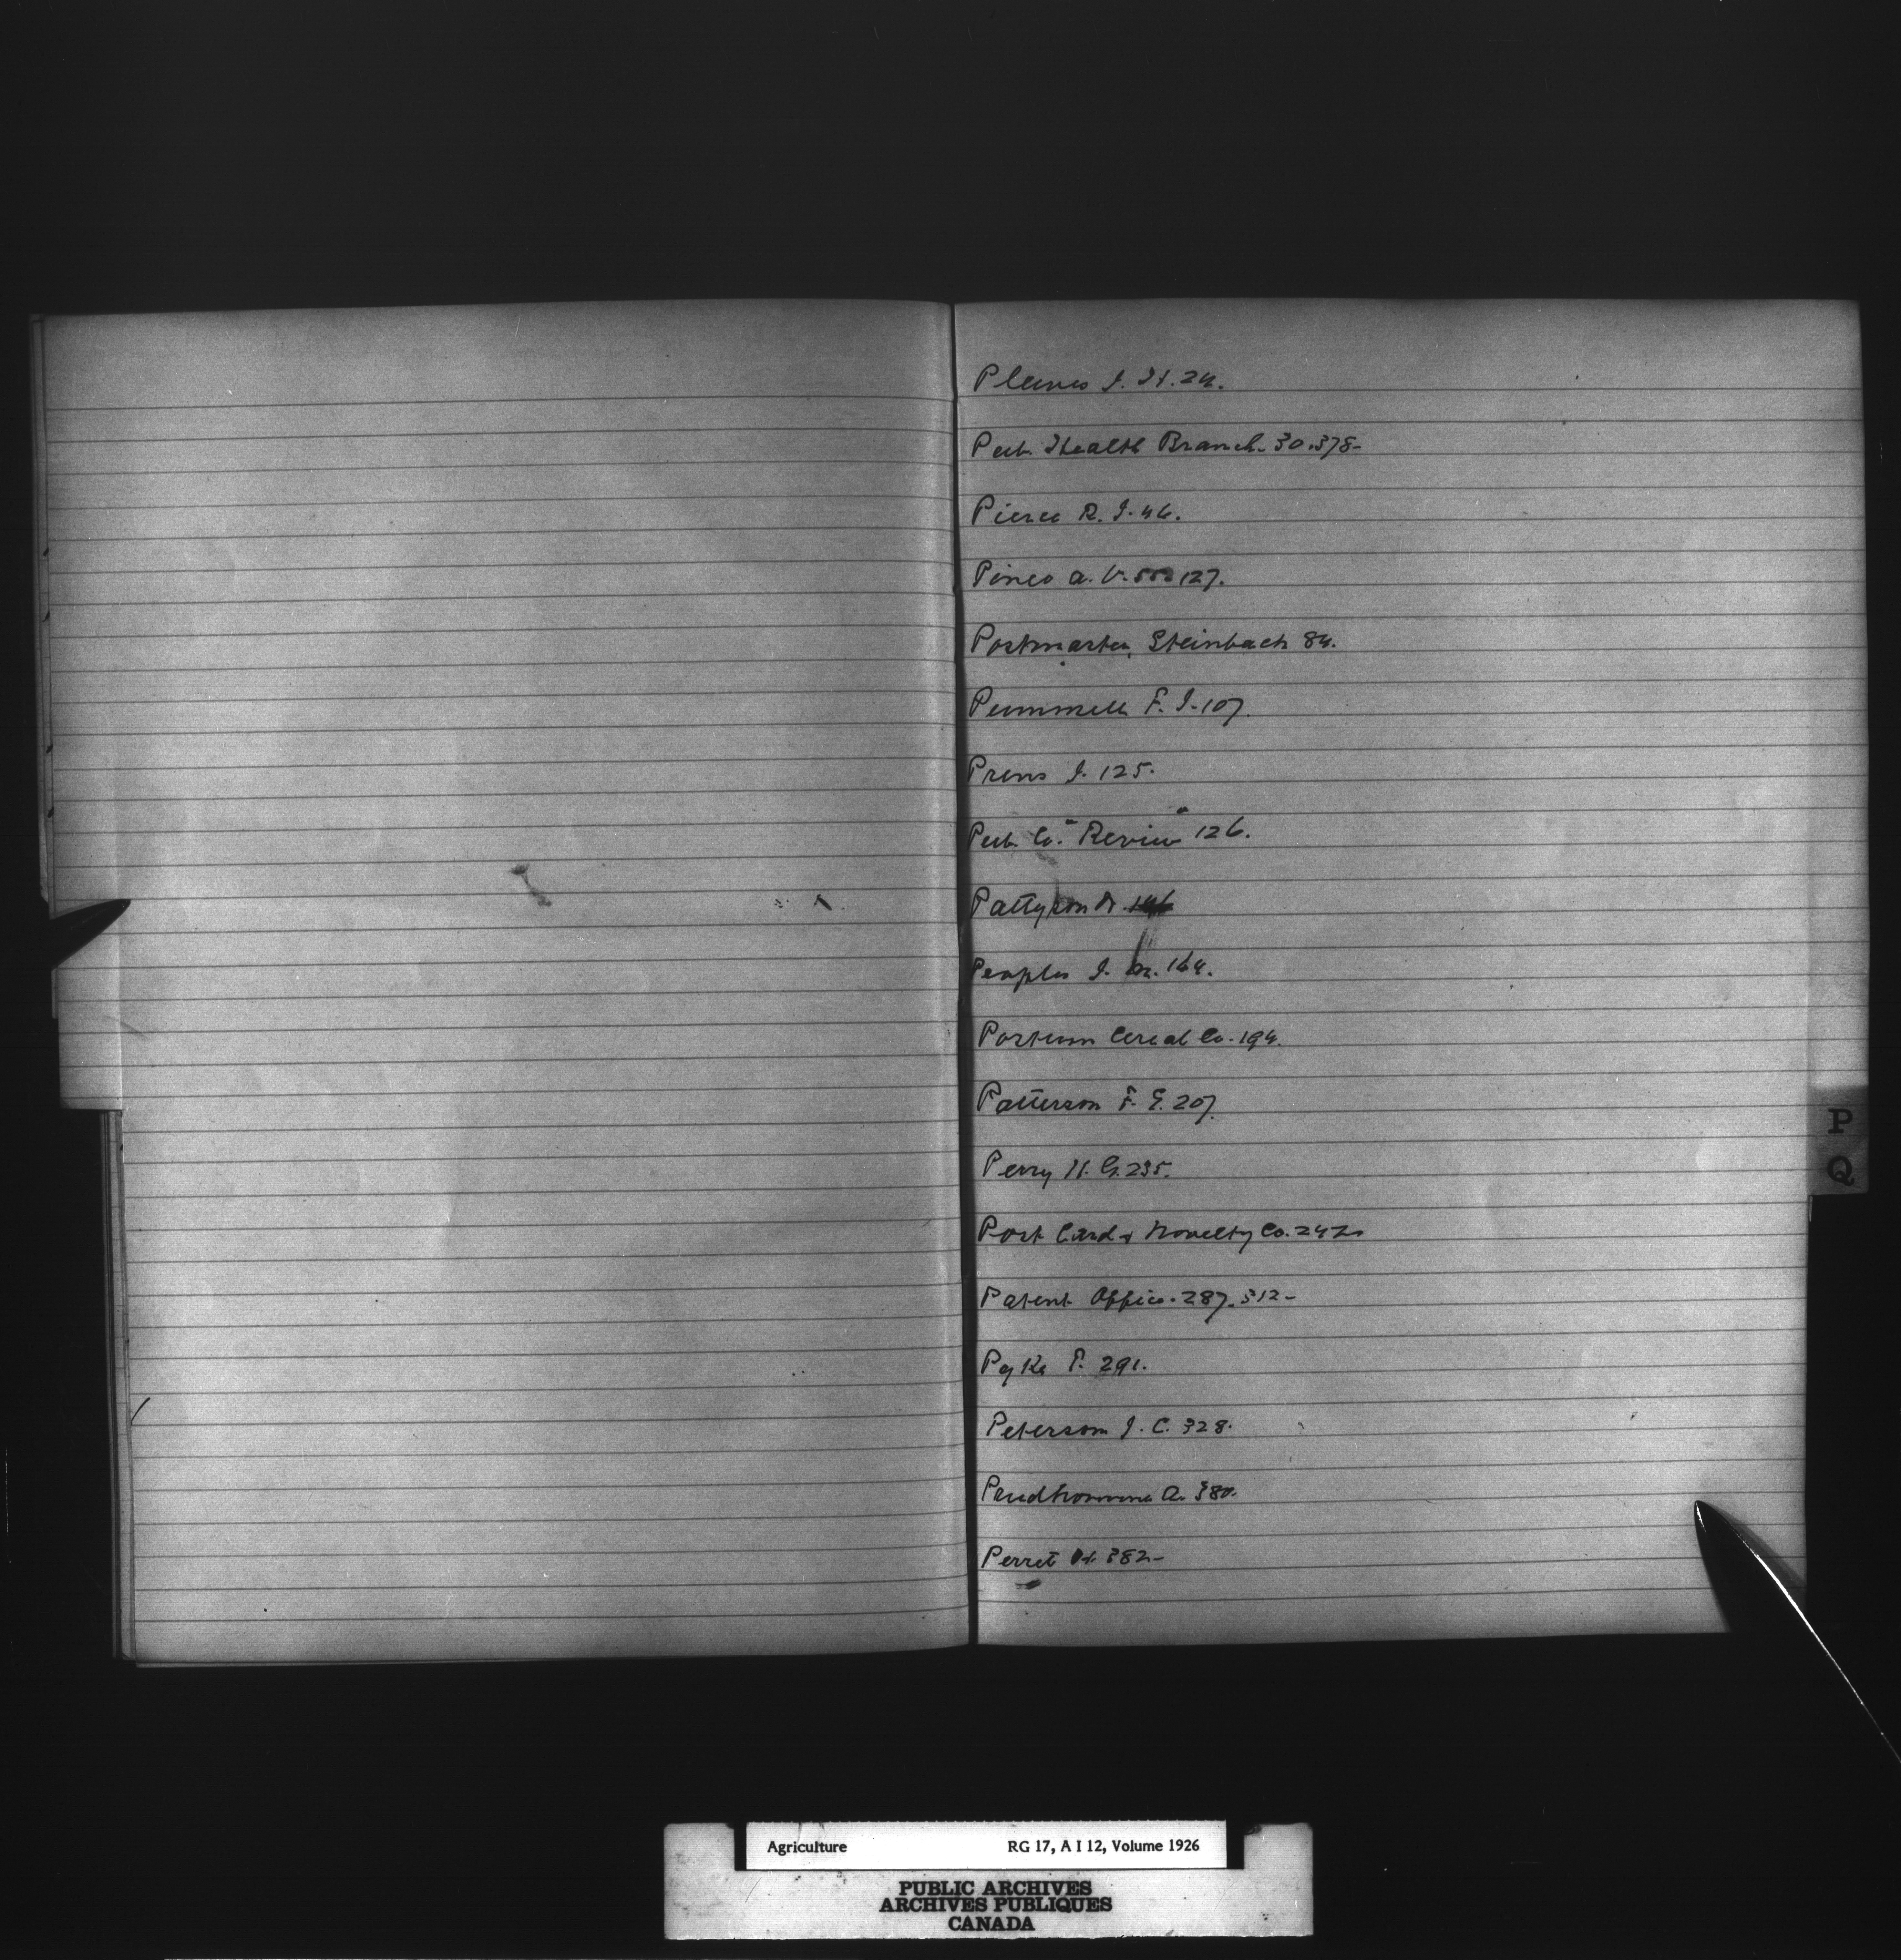 Pleives J. H. 24.
Pub. Health Branch. 30.378-
Pierce R. J. 46.
Pineo A. V. 127.
Postmaster, Steinbach 84.
Pummell F. J. 107.
Prens J. 125.
Pub. Co. "Review" 126.
Pattyson Dr. 146
Peoples J. M. 164.
Postum Cereal Co. 194.
Patterson F. E. 207.
Perry H. G. 235.
Post Card & Novelty Co. 242
Patent Office. 287. 312-
Pyke P. 291.
Peterson J. C. 328.
Prudhomme A. 380.
Perret H. 382-
P
Q
Agriculture RG 17, A I 12, Volume 1926
PUBLIC ARCHIVES
ARCHIVES PUBLIQUES
CANADA